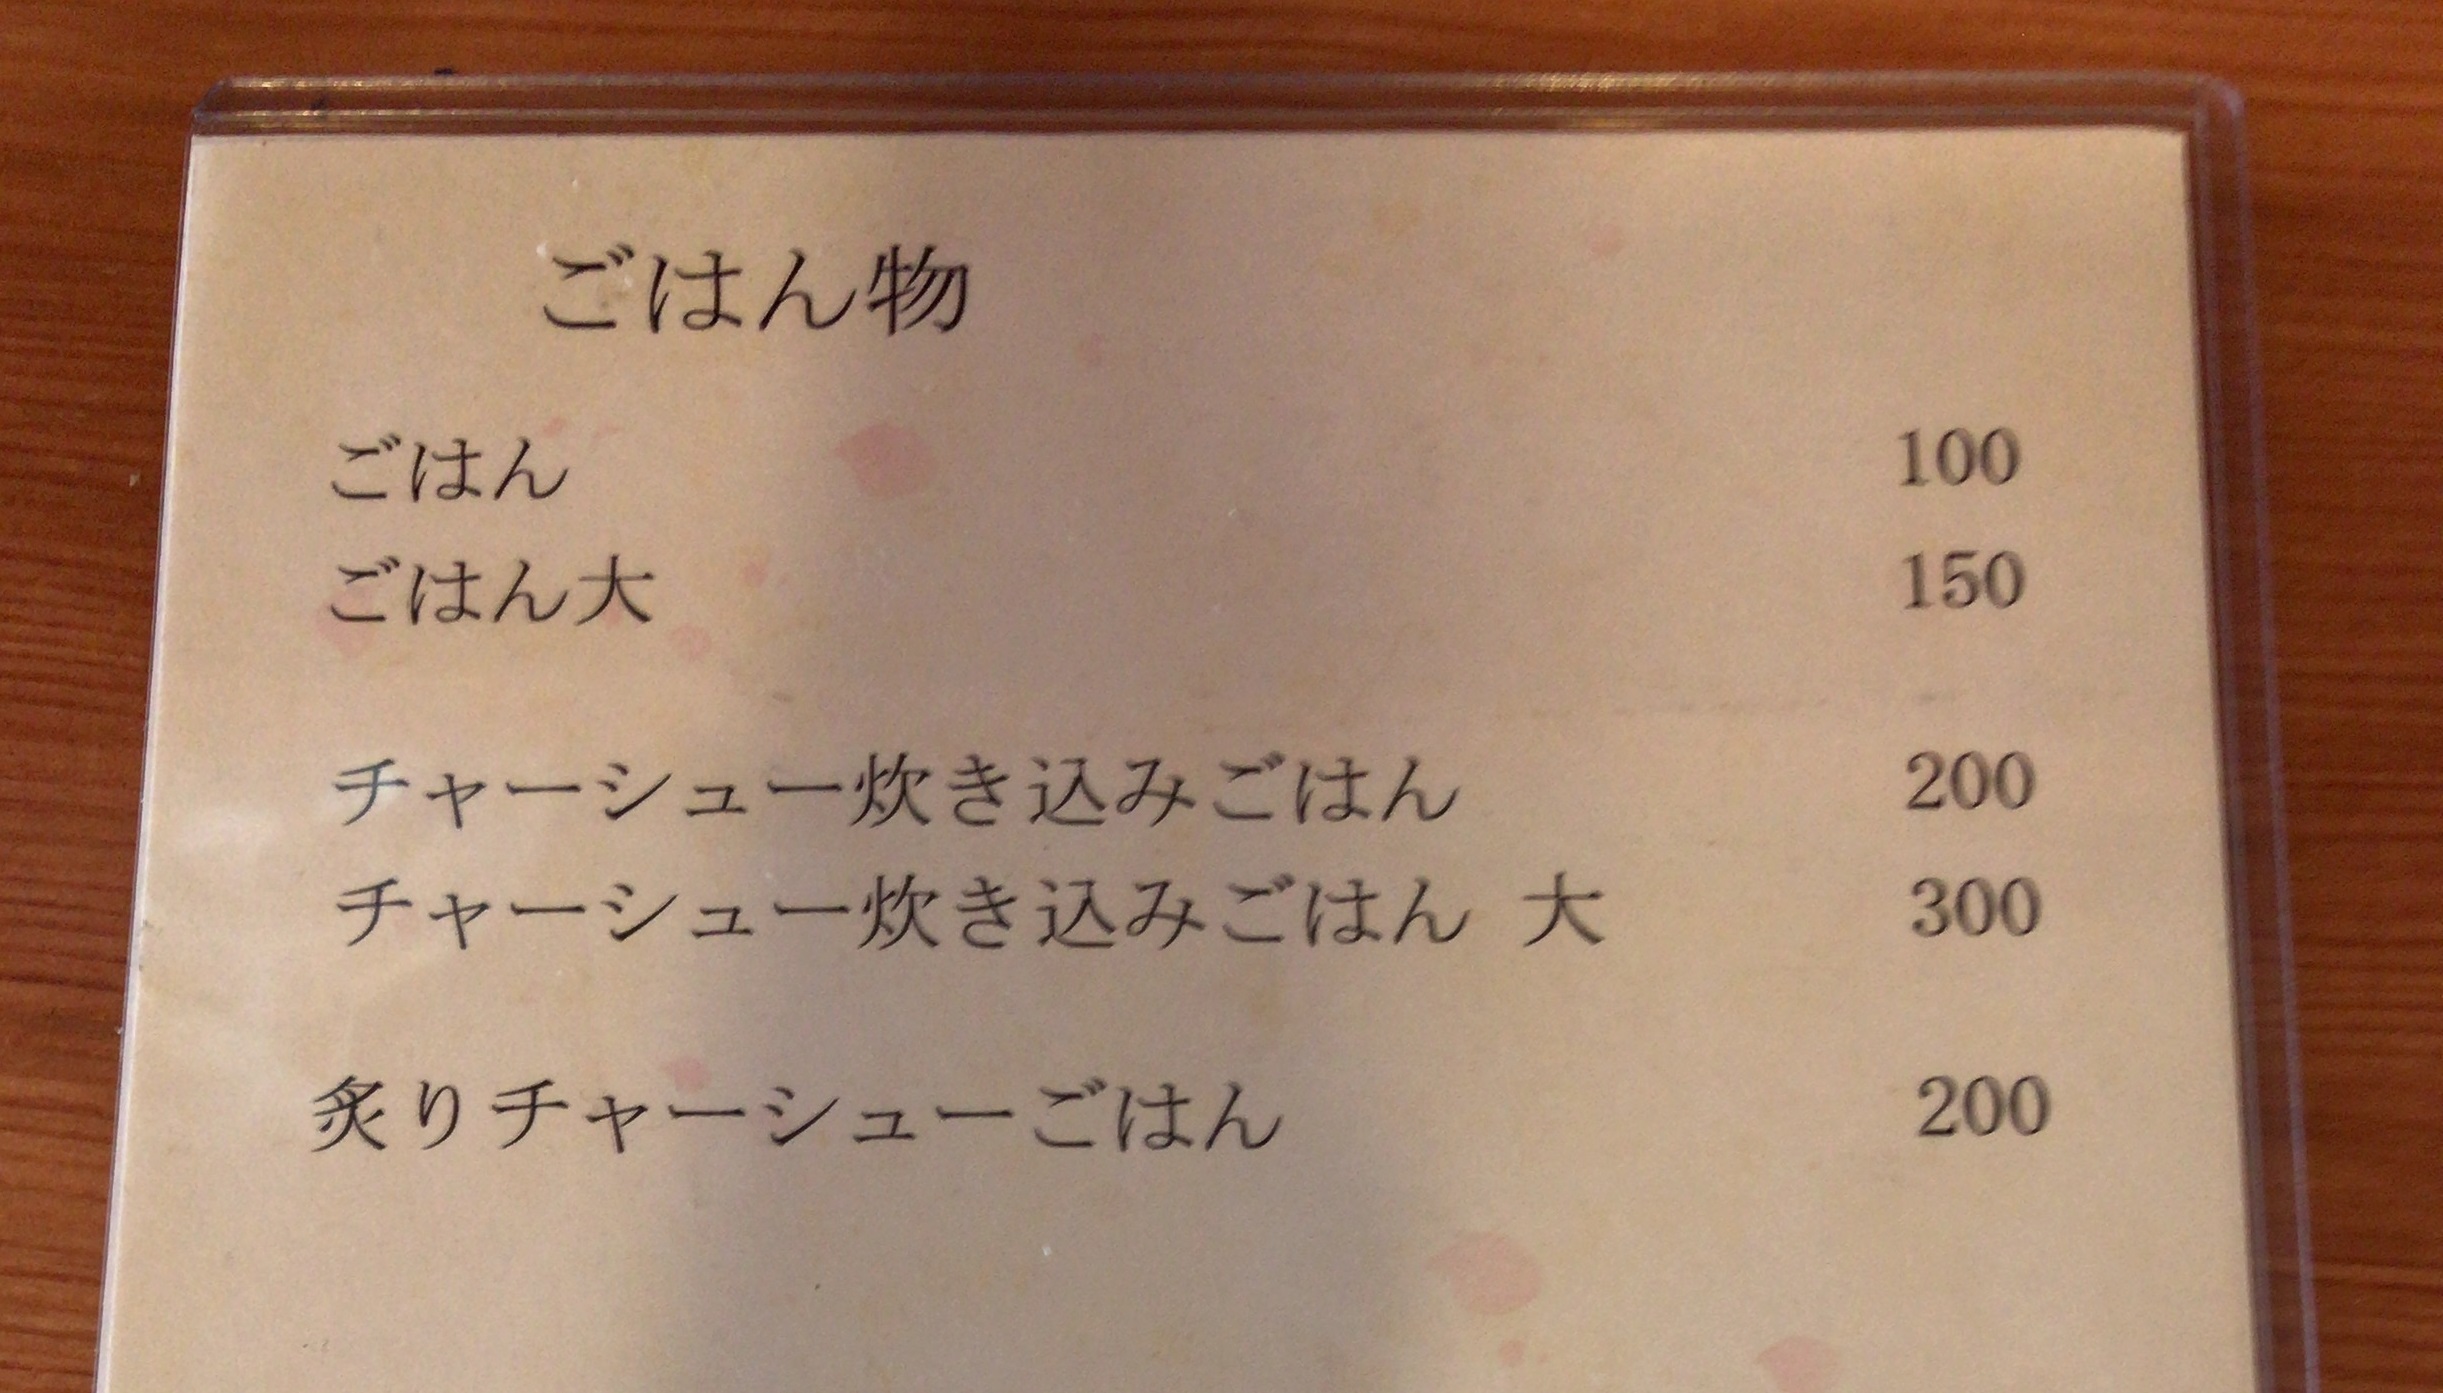 ごはん物
ごはん 100
ごはん大 150
チャーシュー炊き込みごはん 200
チャーシュー炊き込みごはん 大 300
炙りチャーシューごはん 200